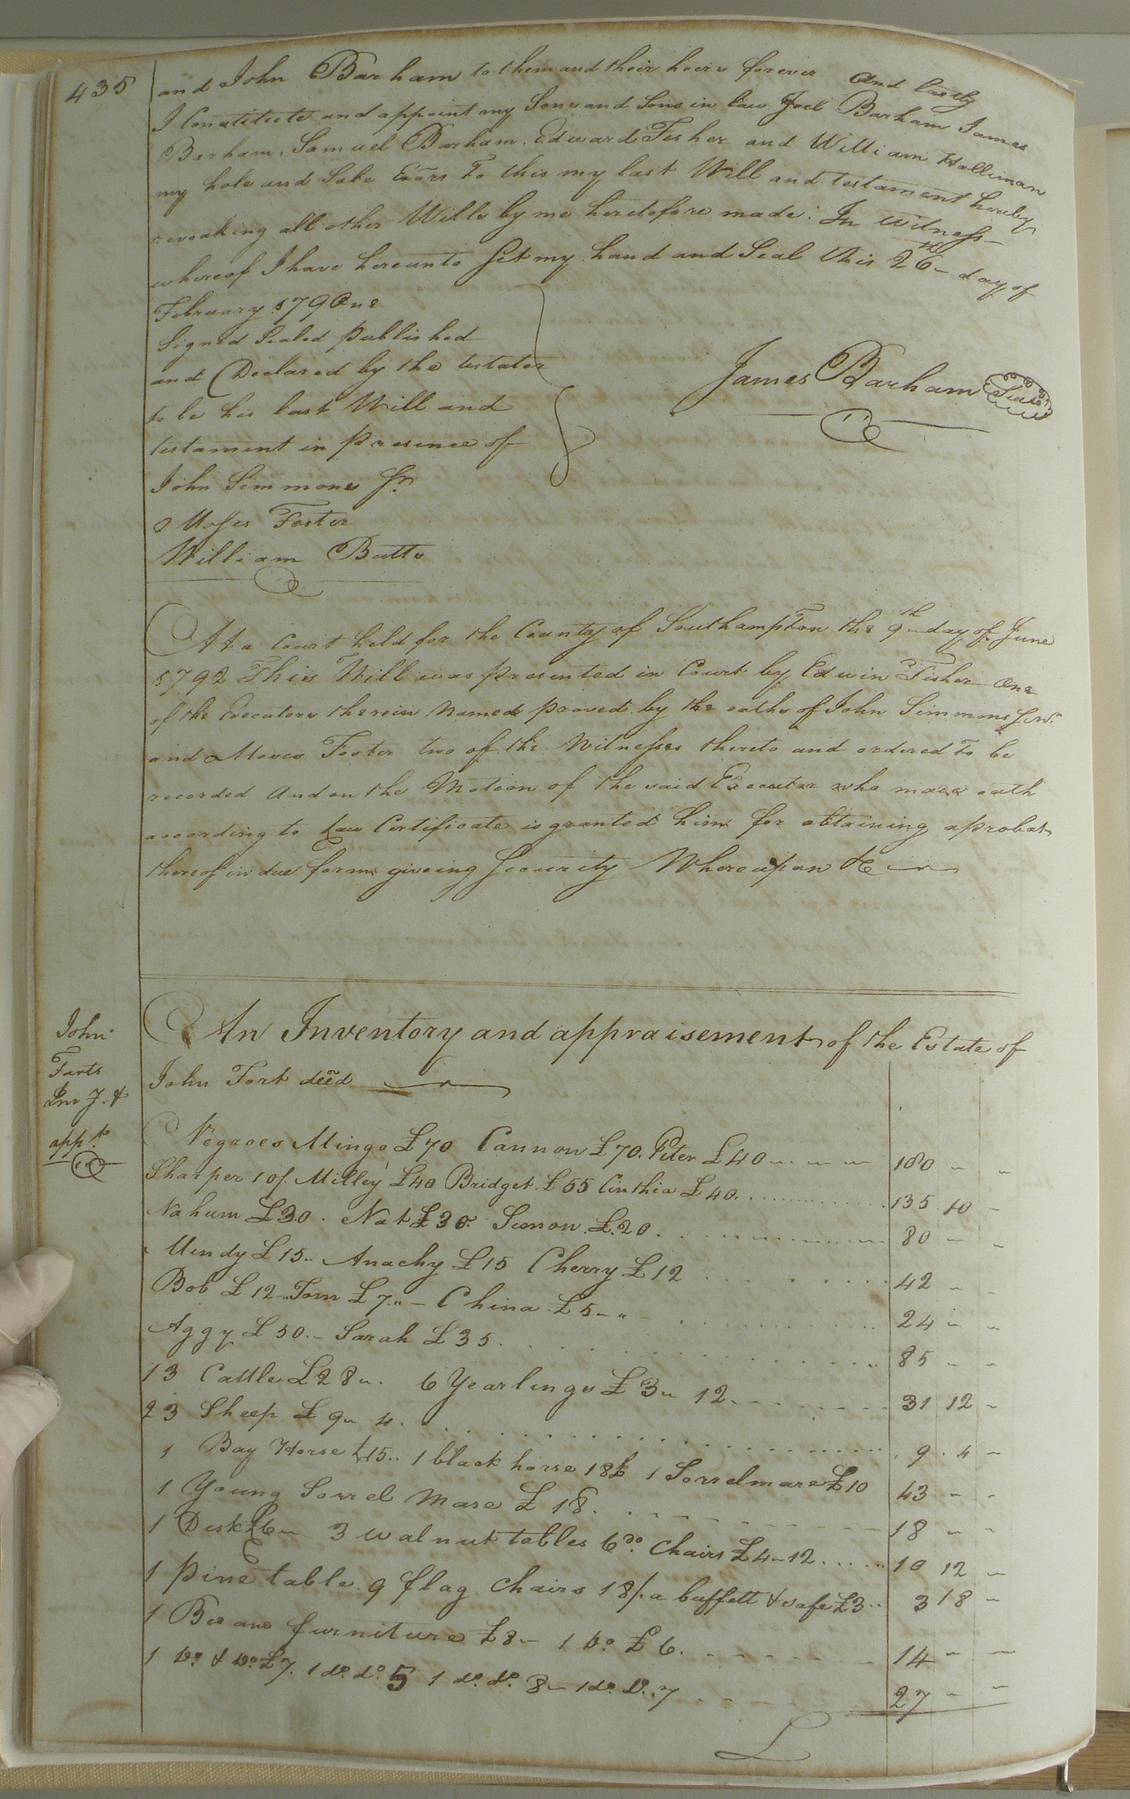 435
and John Barham to them and their heirs forever And lastly
I Constitute and appoint my Sons and Sons in law Joel Barham James
Barham, Samuel Barham, Edward Fisher and William Holliman
my hole and Sole Exors To this my last Will and testament hereby
revoaking all other Wills by me heretofore made. In witness
whereof I have hereunto Set my hand and Seal this 26th day of
February 179One
Signed Sealed published
and Declared by the testator
to be his last Will and
testament in presence of
James Barham Seal
John Simmons Jr.
Moses Foster
William Butts
At a Court held for the County of Southampton the 9th day of June
1792 This Will was presented in Court by Edwin Fisher One
of the Executors therein Named proved by the oaths of John Simmons Junr.
and Moses Foster two of the Witnesses thereto and ordered To be
recorded And on the Motion of the said Executor who made oath
according to Law Certificate is granted him for obtaining a probat
thereof in due form giveing Security Whereupon &c
John
Forts
Inv.y. &
appt.
An Inventory and appraisement of the Estate of
John Fort decd
Negroes Mingo £70 Cannon £70. Peter £40 180 - -
Sharper 10/. Milley £40 Bridget £55 Cinthia £40. 135 10 -
Nahum £30. Nat £30. Simon £20. 80 - -
Mendy £15.. Anachy £15 Cherry £12 42 - -
Bob £12 Tom £7.. - China £5 - 24 - -
Aggy £50.- Sarah £35. 85 - -
13 Cattle £28.. 6 Yearlings £3.. 12. 31 12 -
23 Sheep £9.. 4. 9 4 -
1 Bay Horse £15.. 1 black horse 18£ 1 Sorrel mare £10 43 - -
1 Young Sorrel Mare £18. 18 - -
1 Desk £6 - 3 walnut tables 6 do. Chairs £4-12 10 12 -
1 pine table 9 flag Chairs 18/. a buffett & safe £3.. 3 18 -
1 Bed and furniture £8 - 1 Do. £6. 14 - -
1 Do. & Do. £7. 1 do. do. 5 1 do. do. 8 - 1 do. D. 7 27 - -
£